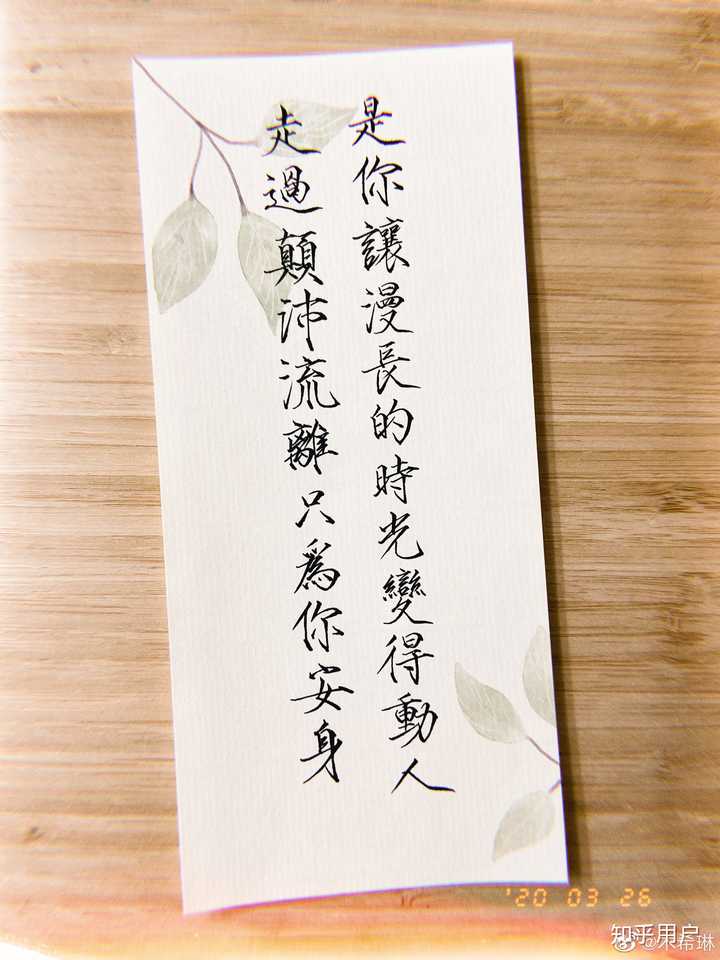 是你讓漫長的時光變得動人
走過顛沛流離只為你安身
'20 03 26
知乎用户
@木希琳